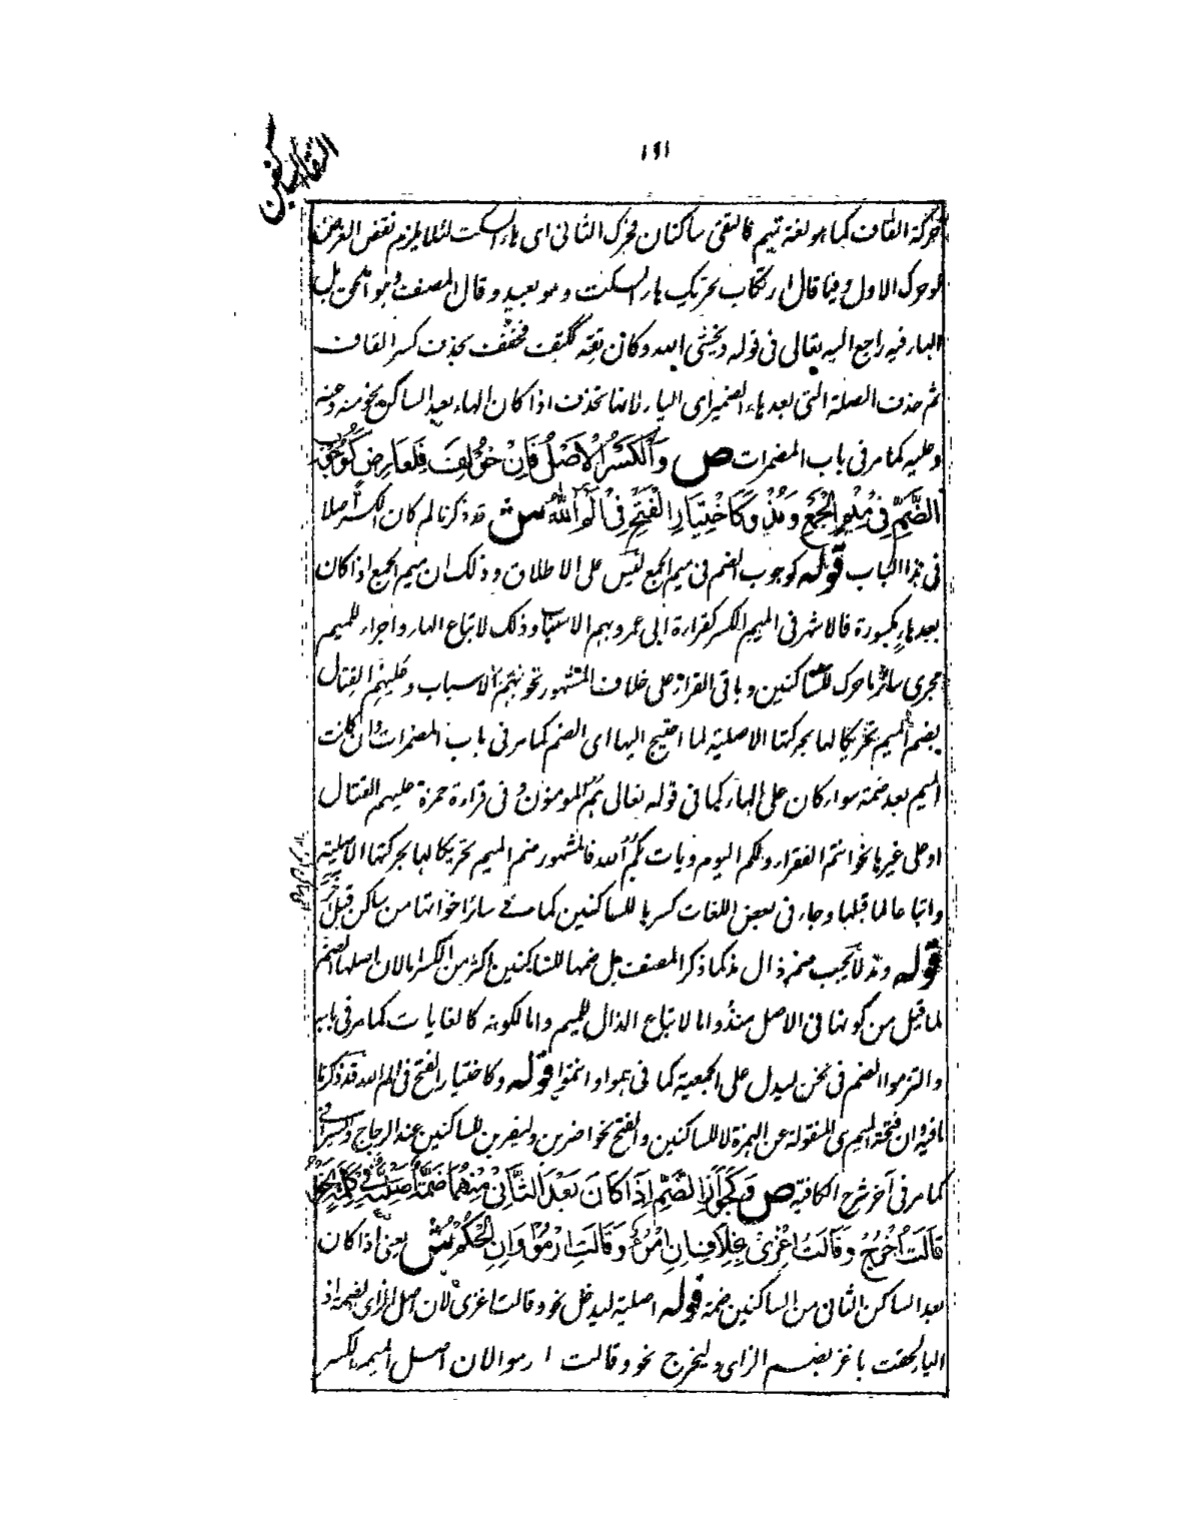 ١٩١
التقاء الساكنين
حركة القاف كما هو لغة تميم فالتقى ساكنان فحرك الثانى اى هاء السكت لئلا يلزم نقض الغرض
لو حرك الاول وفيما قال ارتكاب تحريك هاء السكت وهو بعيد وقال المصنف وهو لحن بل
الهاء فيه راجع اليه تعالى فى قوله ويخشى الله وكان تقه ككتف فخفف بحذف كسر القاف
ثم حذف الصلة التى بعد هاء الضمير اى الياء لانها تحذف اذا كان الهاء بعد الساكن نحو منه وعنه
وعليه كما مر فى باب المضمرات ص وَالْكَسْرُ الْاَصْلُ فَاِنْ خُوْلِفَ فَلِعَارِضٍ كَوُجُوْبِ
الضَّمِّ فِىْ مِيْمِ الْجَمْعِ وَمُذْ وَكَاخْتِيَارِ الْفَتْحِ فِىْ الٓمّٓ اللّٰهُ ش قد ذكرنا لم كان الكسر اصلا
فى هذا الباب قوله كوجوب الضم فى ميم الجمع ليس على الاطلاق وذلك ان ميم الجمع اذا كان
بعد هاء مكسورة فالاشهر فى الميم الكسر كقراءة ابى عمرو بهم الاسباب وذلك لاتباع الهاء واجراء للميم
مجرى سائر ما حرك للساكنين وباقى القراء على خلاف المشهور نحو بهم الاسباب وعليهم القتال
بضم الميم تحريكا لها بحركتها الاصلية لما احتيج اليها اى الضم كما مر فى باب المضمرات وان كانت
الميم بعد ضمة سواء كان على الهاء كما فى قوله تعالى هم المومنون وفى قراءة حمزة عليهم القتال
او على غيرها نحو انتم الفقراء ولكم اليوم ويات بكم الله فالمشهور ضم الميم تحريكا لها بحركتها الاصلية
واتباعا لما قبلها وجاء فى بعض اللغات كسرها للساكنين كما فى سائر اخواتها من ساكن قبل
قوله ومذ لا يجب ضم ذال مذ كما ذكر المصنف بل ضمها للساكنين اكثر من الكسر اما لان اصلها الضم
لما قيل من كونها فى الاصل منذ واما لاتباع الذال للميم واما لكونه كالغايات كما مر فى بابه
والتزموا الضم فى نحن ليدل على الجمعية كما فى همو وانتمو قوله وكاختيار الفتح فى الم الله قد ذكرنا
ما فيه وان فتحة الميم هى المنقولة عن الهمزة لا للساكنين والفتح نحو اضربن وليضربن للساكنين عند الزجاج والسيرافى
كما مر فى آخر شرح الكافية ص وَكَجَوَازِ الضَّمِّ اِذَا كَانَ بَعْدَ الثَّانِىْ مِنْهُمَا ضَمَّةٌ اَصْلِيَّةٌ فِىْ كَلِمَتِهٖ نَحْوُ
قَالَتُ اخْرُجْ وَقَالَتُ اغْزِىْ بِخِلَافِ اِنِ امْرُؤٌ وَقَالَتِ ارْمُوْا وَاِنِ الْحُكْمُ ش يعنى اذا كان
بعد الساكن الثانى من الساكنين ضمة قوله اصلية ليدخل نحو وقالت اغزى لان اصل الزاى الضمة اذ
الياء لحقت باغز بضم الزاى وليخرج نحو وقالت ارموا لان اصل الميم الكسر